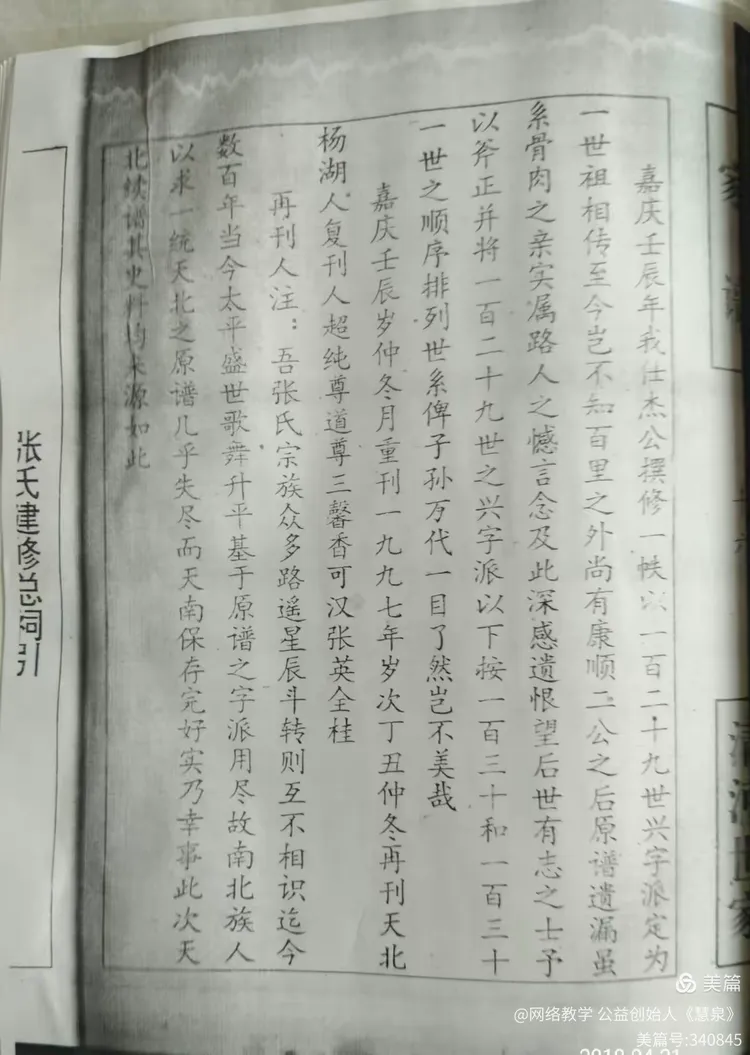 嘉庆壬辰年我仕杰公撰修一帙以一百二十九世兴字派定为
一世祖相传至今岂不知百里之外尚有康顺二公之后原谱遗漏虽
系骨肉之亲实属路人之憾言念及此深感遗恨望后世有志之士予
以斧正并将一百二十九世之兴字派以下按一百三十和一百三十
一世之顺序排列世系俾子孙万代一目了然岂不美哉
嘉庆壬辰岁仲冬月重刊一九九七年岁次丁丑仲冬再刊天北
杨湖人复刊人超纯尊道尊三馨香可汉张英全桂
再刊人注：吾张氏宗族众多路遥星辰斗转则互不相识迄今
数百年当今太平盛世歌舞升平基于原谱之字派用尽故南北族人
以求一统天北之原谱几乎失尽而天南保存完好实乃幸事此次天
北续谱其史料均来源如此
张氏建修总祠引
家谱
清河世家
美篇
@网络教学 公益创始人《慧泉》
美篇号:340845